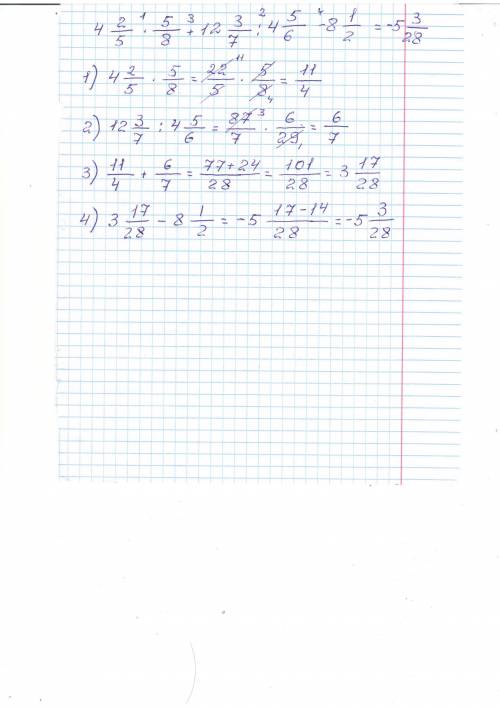 4 2/5 · 5/8 + 12 3/7 : 4 5/6 - 8 1/2 = -5 3/28
1) 4 2/5 · 5/8 = 22/5 · 5/8 = 11/4
2) 12 3/7 : 4 5/6 = 87/7 · 6/29 = 6/7
3) 11/4 + 6/7 = 77+24/28 = 101/28 = 3 17/28
4) 3 17/28 - 8 1/2 = -5 17-14/28 = -5 3/28